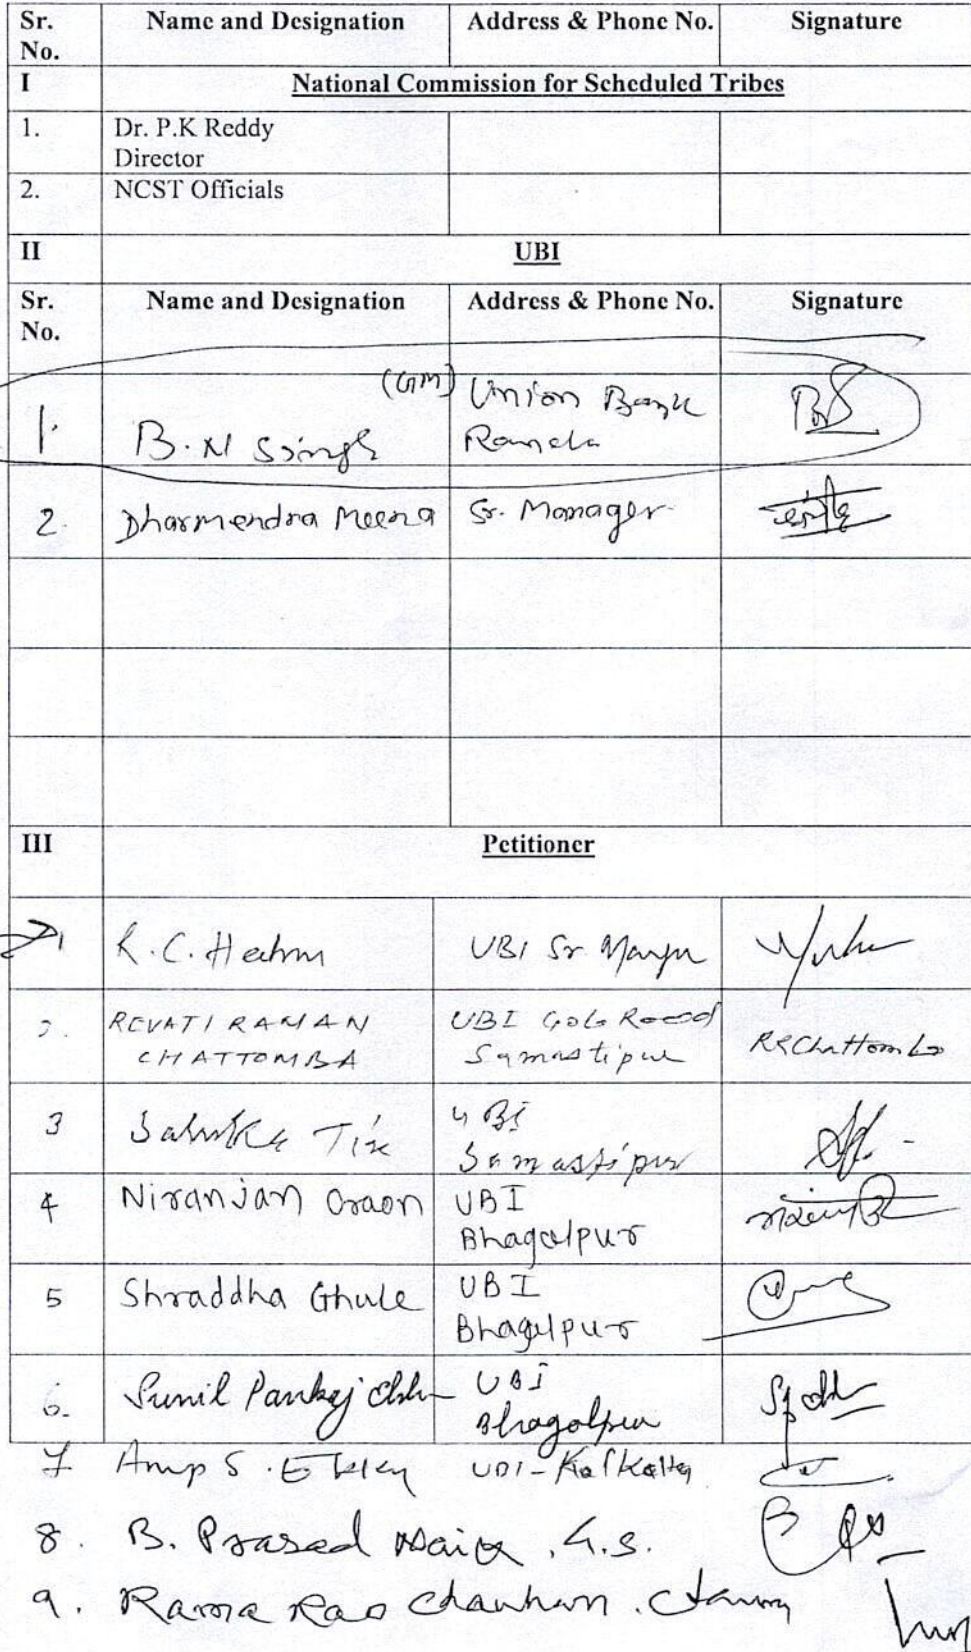 Sr. No. Name and Designation Address & Phone No. Signature
I National Commission for Scheduled Tribes
1. Dr. P.K Reddy
Director
2. NCST Officials
II UBI
Sr. No. Name and Designation Address & Phone No. Signature
1. B. N Ssingh (GM) Union Bank
2. Dharmendra Meena Sr. Manager
III Petitioner
1 K. C.
UBI Sr
2. REVATI RAMAN UBI Gola Road
CHATTOMBA Samastipur RRChattomba
3 UBI
Samastipur
4 Niranjan Oraon UBI
Bhagalpur
5 Shraddha Ghule UBI
Bhagalpur
6. Sunil Pankaj UBI
Bhagalpur
7 Anup S. UBI - Kolkatta
8. B. Prasad Naik, G.S.
9. Rama Rao Chauhan.